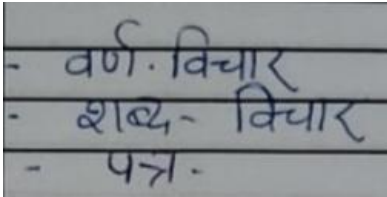 - वर्ण. विचार
- शब्द- विचार
- पत्र-